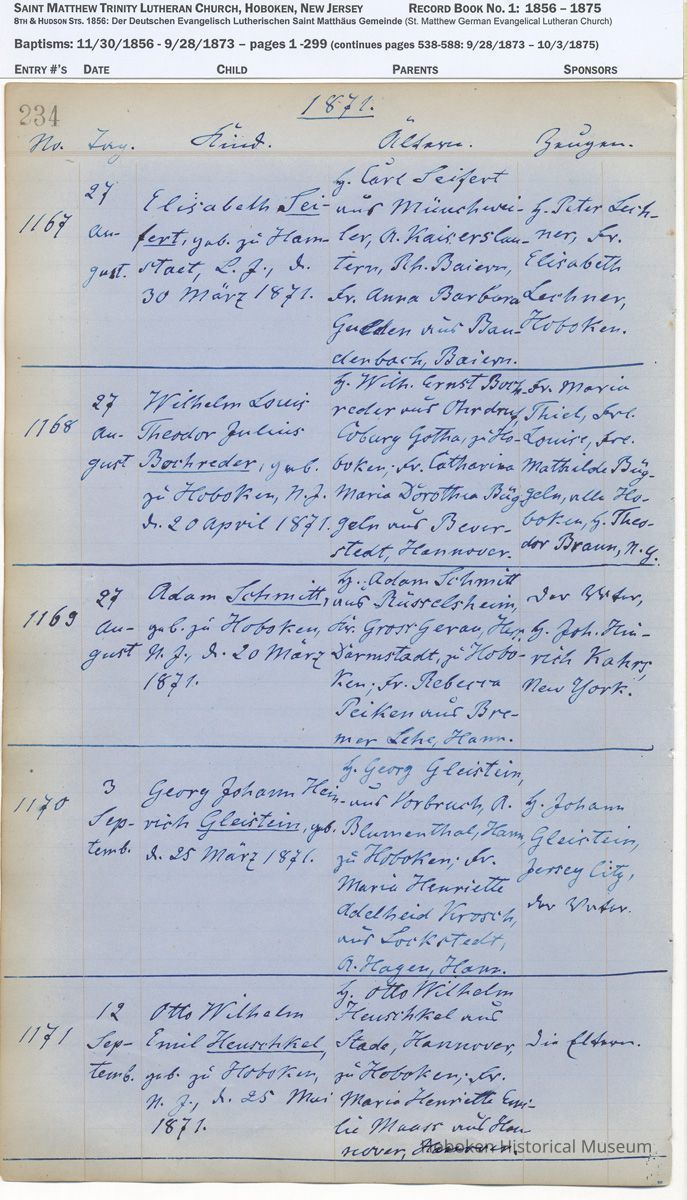 SAINT MATTHEW TRINITY LUTHERAN CHURCH, HOBOKEN, NEW JERSEY RECORD BOOK NO. 1: 1856 – 1875
8TH & HUDSON STS. 1856: Der Deutschen Evangelisch Lutherischen Saint Matthäus Gemeinde (St. Matthew German Evangelical Lutheran Church)
Baptisms: 11/30/1856 - 9/28/1873 – pages 1 -299 (continues pages 538-588: 9/28/1873 – 10/3/1875)
ENTRY #'S DATE CHILD PARENTS SPONSORS
234
1871.
No. Tag. Kind. Ältern. Zeugen.
1167
27
Au-
gust.
Elisabeth Sei-
fert, geb. zu Ham-
staet, L. J., d.
30 März 1871.
H. Carl Seifert
aus Münchwei-
ler, A. Kaiserslau-
tern, Rh. Baiern,
Fr. Anna Barbara
Gulden aus Bau-
denbach, Baiern.
H. Peter Lech-
ner, Fr.
Elisabeth
Lechner,
Hoboken.
1168
27
Au-
gust
Wilhelm Louis
Theodor Julius
Bochreder, geb.
zu Hoboken, N. J.
d. 20 April 1871.
H. Wilh. Ernst Boch-
reder aus Ohrdruf,
Coburg Gotha, zu Ho-
boken; Fr. Catharina
Maria Dorothea Büg-
geln aus Bever-
stedt, Hannover.
Fr. Maria
Thiel, Frl.
Louise, Frl.
Mathilde Büg-
geln, alle Ho-
boken, H. Theo-
dor Braun, N. Y.
1169
27
Au-
gust
Adam Schmitt,
geb. zu Hoboken,
N. J., d. 20 März
1871.
H. Adam Schmitt
aus Rüsselsheim,
Kr. Gross Gerau, Hess.
Darmstadt, zu Hobo-
ken; Fr. Rebecca
Peiken aus Bre-
mer Lehe, Hann.
Der Vater,
H. Joh. Hin-
rich Kahrs,
New York.
1170
3
Sep-
temb.
Georg Johann Hein-
rich Gleistein, geb.
d. 25 März 1871.
H. Georg Gleistein,
aus Vorbruch, A.
Blumenthal, Hann.
zu Hoboken; Fr.
Maria Henriette
Adelheid Krosch,
aus Lockstedt,
A. Hagen, Hann.
H. Johann
Gleistein,
Jersey City,
der Vater.
1171
12
Sep-
temb.
Otto Wilhelm
Emil Heuschkel,
geb. zu Hoboken,
N. J., d. 25 Mai
1871.
H. Otto Wilhelm
Heuschkel aus
Stade, Hannover,
zu Hoboken; Fr.
Maria Henriette Emi-
lie Maass aus Han-
nover,
Die Eltern.
Hoboken Historical Museum